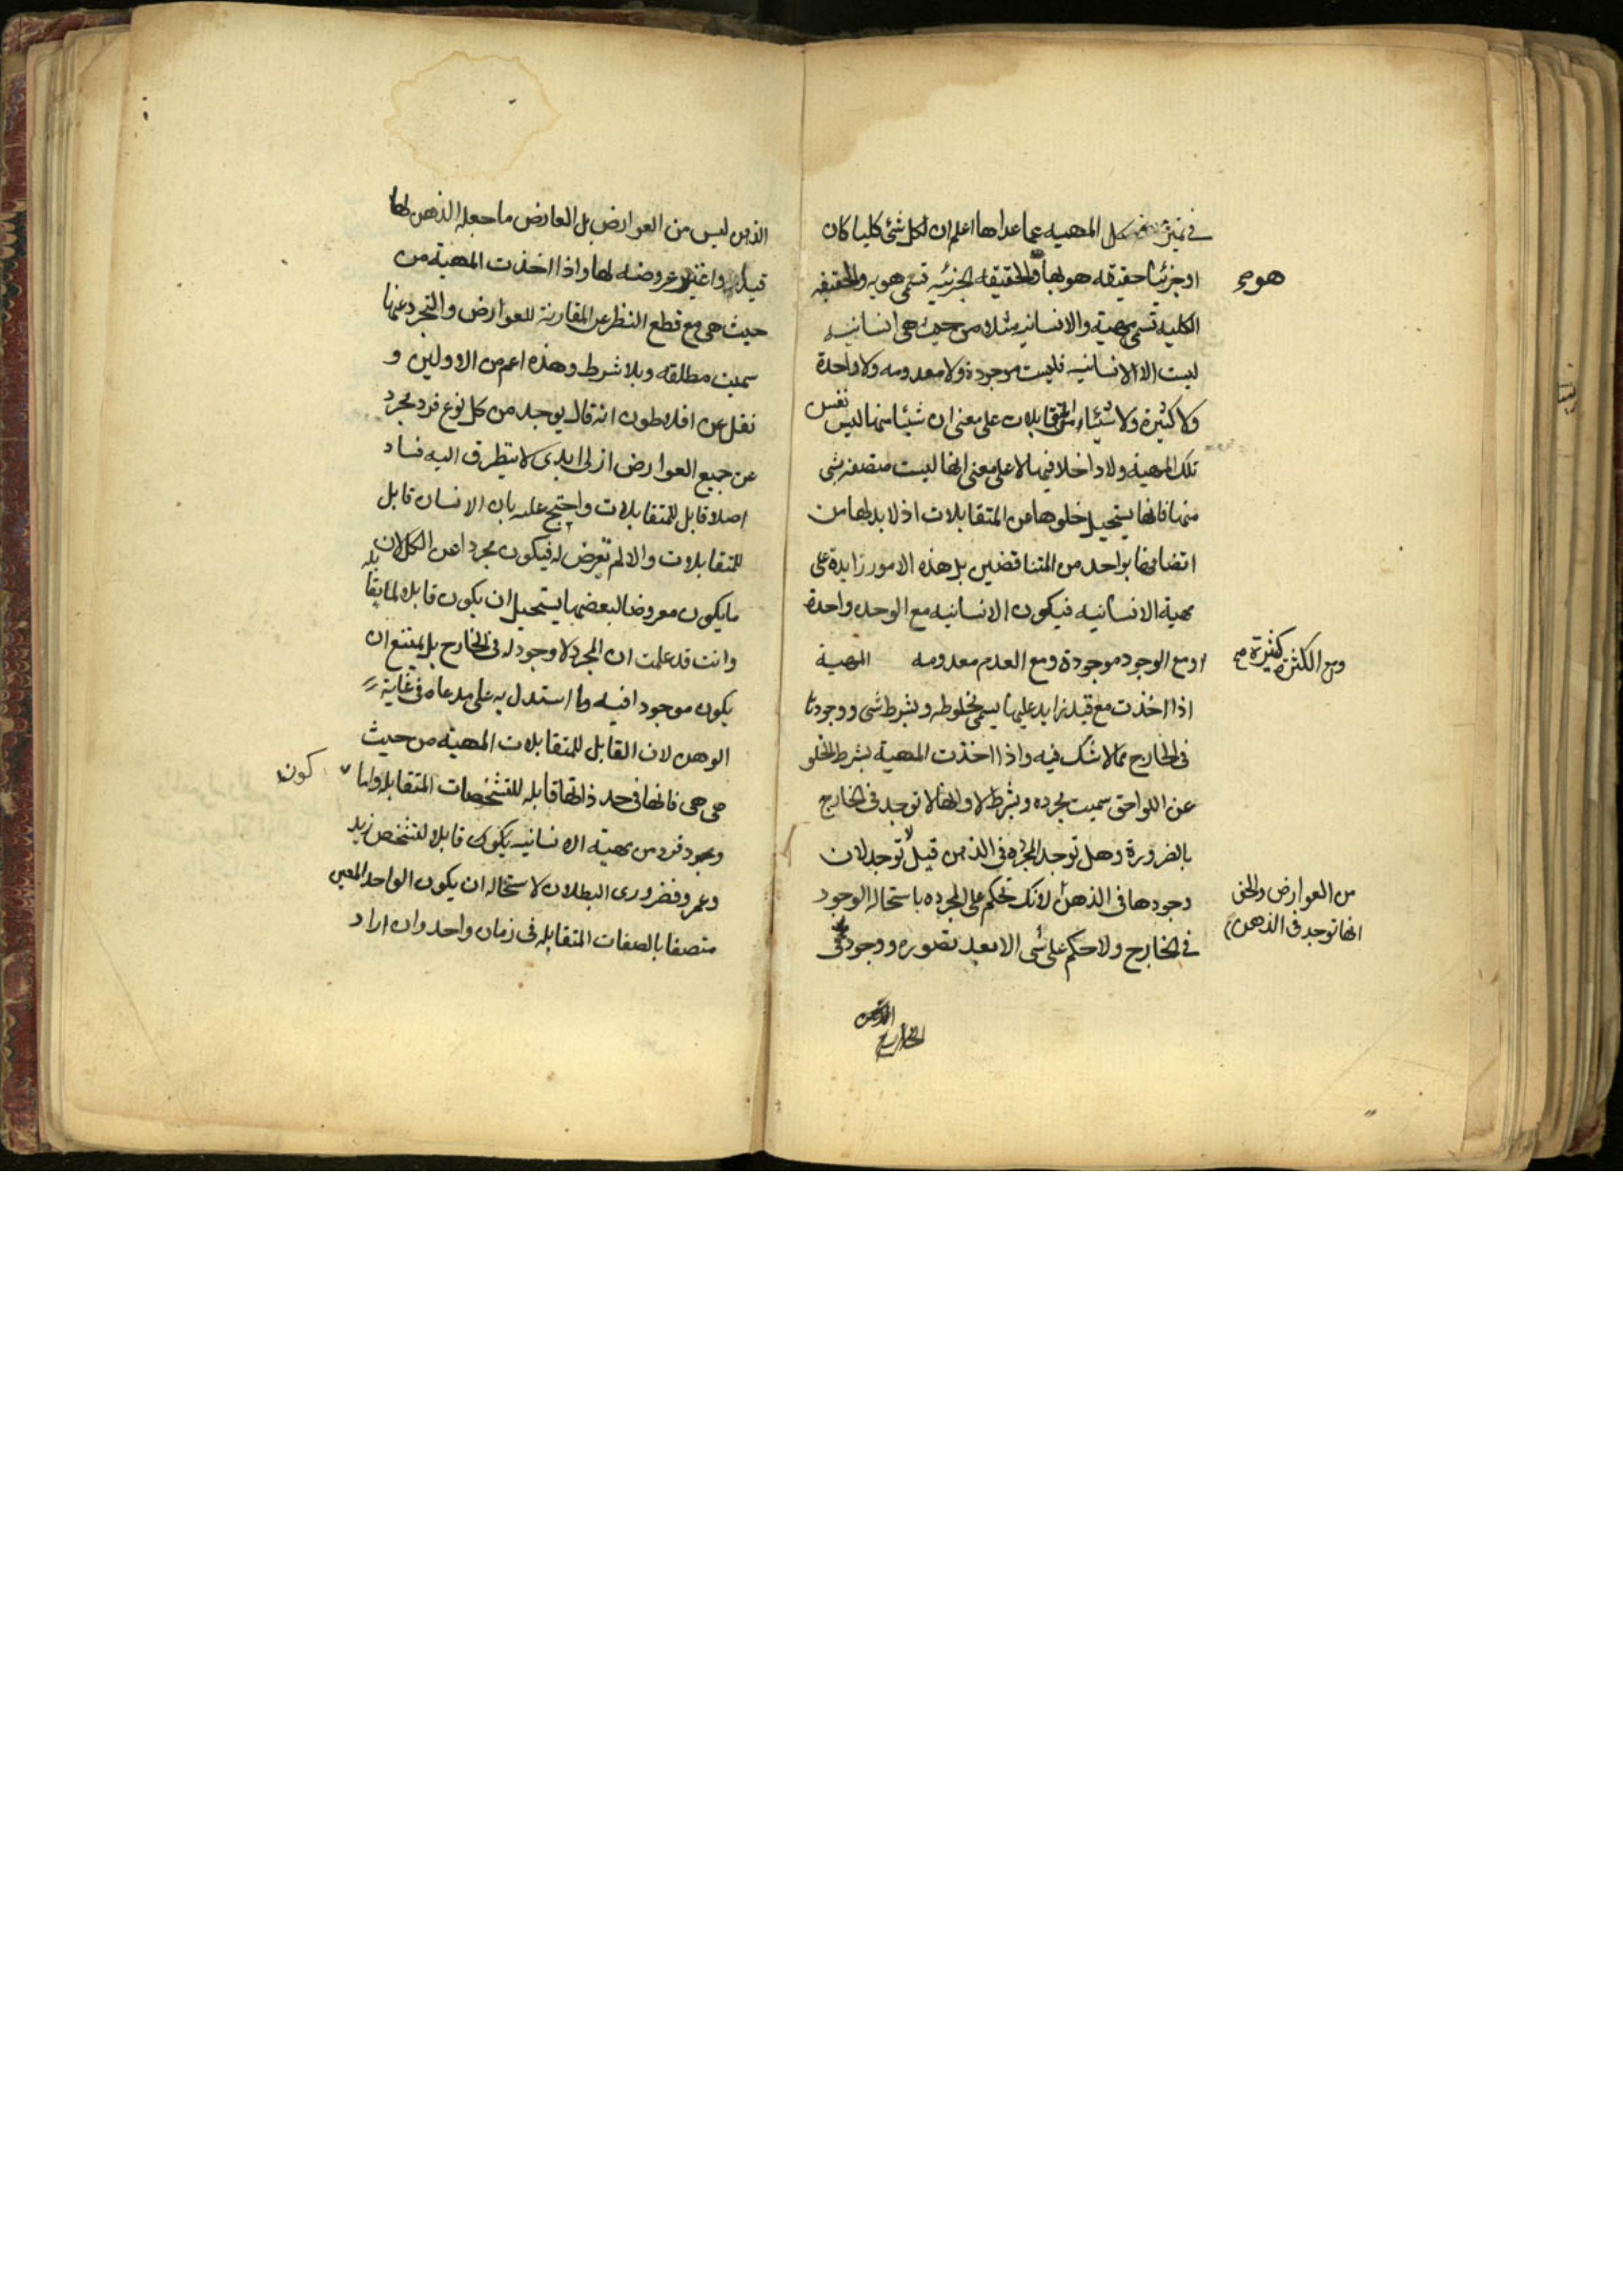 في تميز المهية عما عداها اعلم ان لكل شئ كليا كان
او جزئيا حقيقه هو بها والحقيقه الجزئيه تسمى هويه والحقيقه
هو صح
الكليه تسمى مهية والانسانيه مثلا من حيث هى انسانيه
ليست الا الانسانيه فليست موجودة ولا معدومه ولا واحدة
ولا كثيرة ولا شيئا من المتقابلات على معنى ان شيئا منها ليس نفس
تلك المهية ولا داخلا فيها لا على معنى انها ليست متصفه بشى
منها فانها يستحيل خلوها من المتقابلات اذ لا بد لها من
اتصافها بواحد من المتناقضين بل هذه الامور زايدة على
مهية الانسانيه فيكون الانسانيه مع الوحده واحدة
ومع الكثرة كثيرة صح
او مع الوجود موجودة ومع العدم معدومه المهية
اذا اخذت مع قيد زايد عليها يسمى مخلوطه وبشرط شى ووجودها
فى الخارج مما لا شك فيه واذا اخذت المهية بشرط الخلو
عن اللواحق سميت مجرده وبشرط لا وانها لا توجد فى الخارج
بالضرورة وهل توجد المجرده فى الذهن قيل لا توجد لان
وجودها فى الذهن لانك تحكم على المجرده باستحاله الوجود
من العوارض والحق
انها توجد فى الذهن
في الخارج ولا حكم على شى الا بعد تصوره ووجوده فى
الذهن
الخارج
الذهن ليس من العوارض بل العارض ما جعله الذهن لها
قيدا واعتبر عروضه لها واذا اخذت المهية من
حيث هى مع قطع النظر عن المقارنة للعوارض والتجرد عنها
سميت مطلقه وبلا شرط وهذه اعم من الاولين و
نقل عن افلاطون انه قال يوجد من كل نوع فرد مجرد
عن جميع العوارض ازلى ابدى لا يتطرق اليه فساد
اصلا قابل للمتقابلات واحتج عليه بان الانسان قابل
للمتقابلات والا لم تعرض له فيكون مجردا عن الكل لان
ما يكون معروضا لبعضها يستحيل ان يكون قابلا لما يقابله
وانت قد علمت ان المجرد لا وجود له فى الخارج بل يمتنع ان
يكون موجودا فيه وما استدل به على مدعاه فى غاية
الوهن لان القابل للمتقابلات المهية من حيث
هى هى فانها فى حد ذاتها قابله للتشخصات المتقابله واما
كون
وجود فرد من مهية الانسانيه يكون قابلا لتشخص زيد
وعمرو فضرورى البطلان لاستحاله ان يكون الواحد المعين
متصفا بالصفات المتقابله فى زمان واحد وان اراد